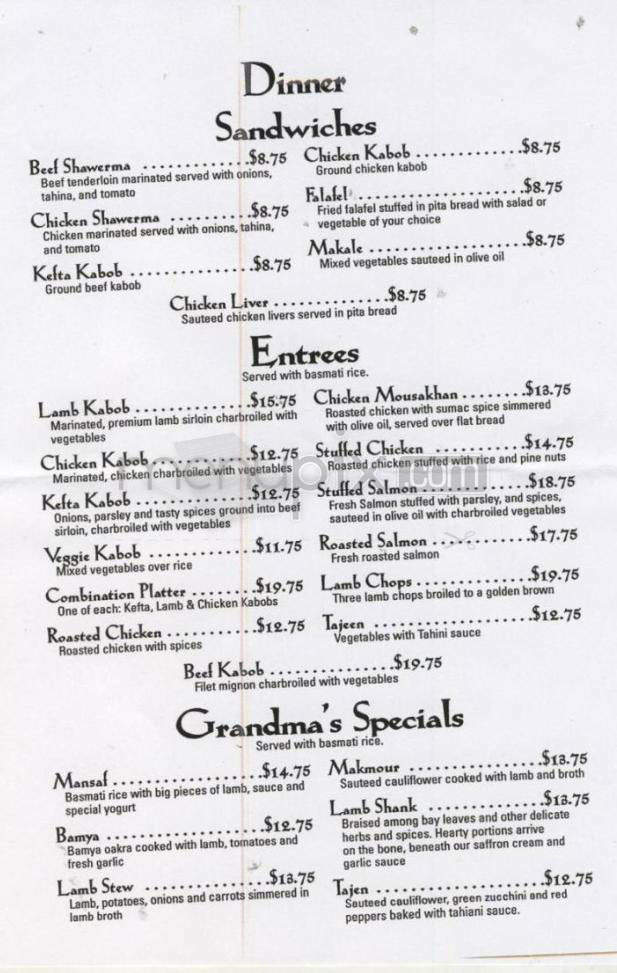 Dinner
Sandwiches
Beef Shawerma ............$8.75
Beef tenderloin marinated served with onions,
tahina, and tomato
Chicken Shawerma .........$8.75
Chicken marinated served with onions, tahina,
and tomato
Kefta Kabob ..............$8.75
Ground beef kabob
Chicken Kabob ............$8.75
Ground chicken kabob
Falafel ..................$8.75
Fried falafel stuffed in pita bread with salad or
vegetable of your choice
Makale ...................$8.75
Mixed vegetables sauteed in olive oil
Chicken Liver ............$8.75
Sauteed chicken livers served in pita bread
Entrees
Served with basmati rice.
Lamb Kabob ............$15.75
Marinated, premium lamb sirloin charbroiled with
vegetables
Chicken Kabob ...........$12.75
Marinated, chicken charbroiled with vegetables
Kefta Kabob ............$12.75
Onions, parsley and tasty spices ground into beef
sirloin, charbroiled with vegetables
Veggie Kabob ............$11.75
Mixed vegetables over rice
Combination Platter ........$19.75
One of each: Kefta, Lamb & Chicken Kabobs
Roasted Chicken ..........$12.75
Roasted chicken with spices
Chicken Mousakhan ........$13.75
Roasted chicken with sumac spice simmered
with olive oil, served over flat bread
Stuffed Chicken ..........$14.75
Roasted chicken stuffed with rice and pine nuts
Stuffed Salmon ............$18.75
Fresh Salmon stuffed with parsley, and spices,
sauteed in olive oil with charbroiled vegetables
Roasted Salmon ............$17.75
Fresh roasted salmon
Lamb Chops ..............$19.75
Three lamb chops broiled to a golden brown
Tajeen ..................$12.75
Vegetables with Tahini sauce
Beef Kabob ..............$19.75
Filet mignon charbroiled with vegetables
Grandma's Specials
Served with basmati rice.
Mansaf ..................$14.75
Basmati rice with big pieces of lamb, sauce and
special yogurt
Bamya ...................$12.75
Bamya oakra cooked with lamb, tomatoes and
fresh garlic
Lamb Stew ..............$13.75
Lamb, potatoes, onions and carrots simmered in
lamb broth
Makmour ................$13.75
Sauteed cauliflower cooked with lamb and broth
Lamb Shank .............$13.75
Braised among bay leaves and other delicate
herbs and spices. Hearty portions arrive
on the bone, beneath our saffron cream and
garlic sauce
Tajen ....................$12.75
Sauteed cauliflower, green zucchini and red
peppers baked with tahiani sauce.
menupix.com